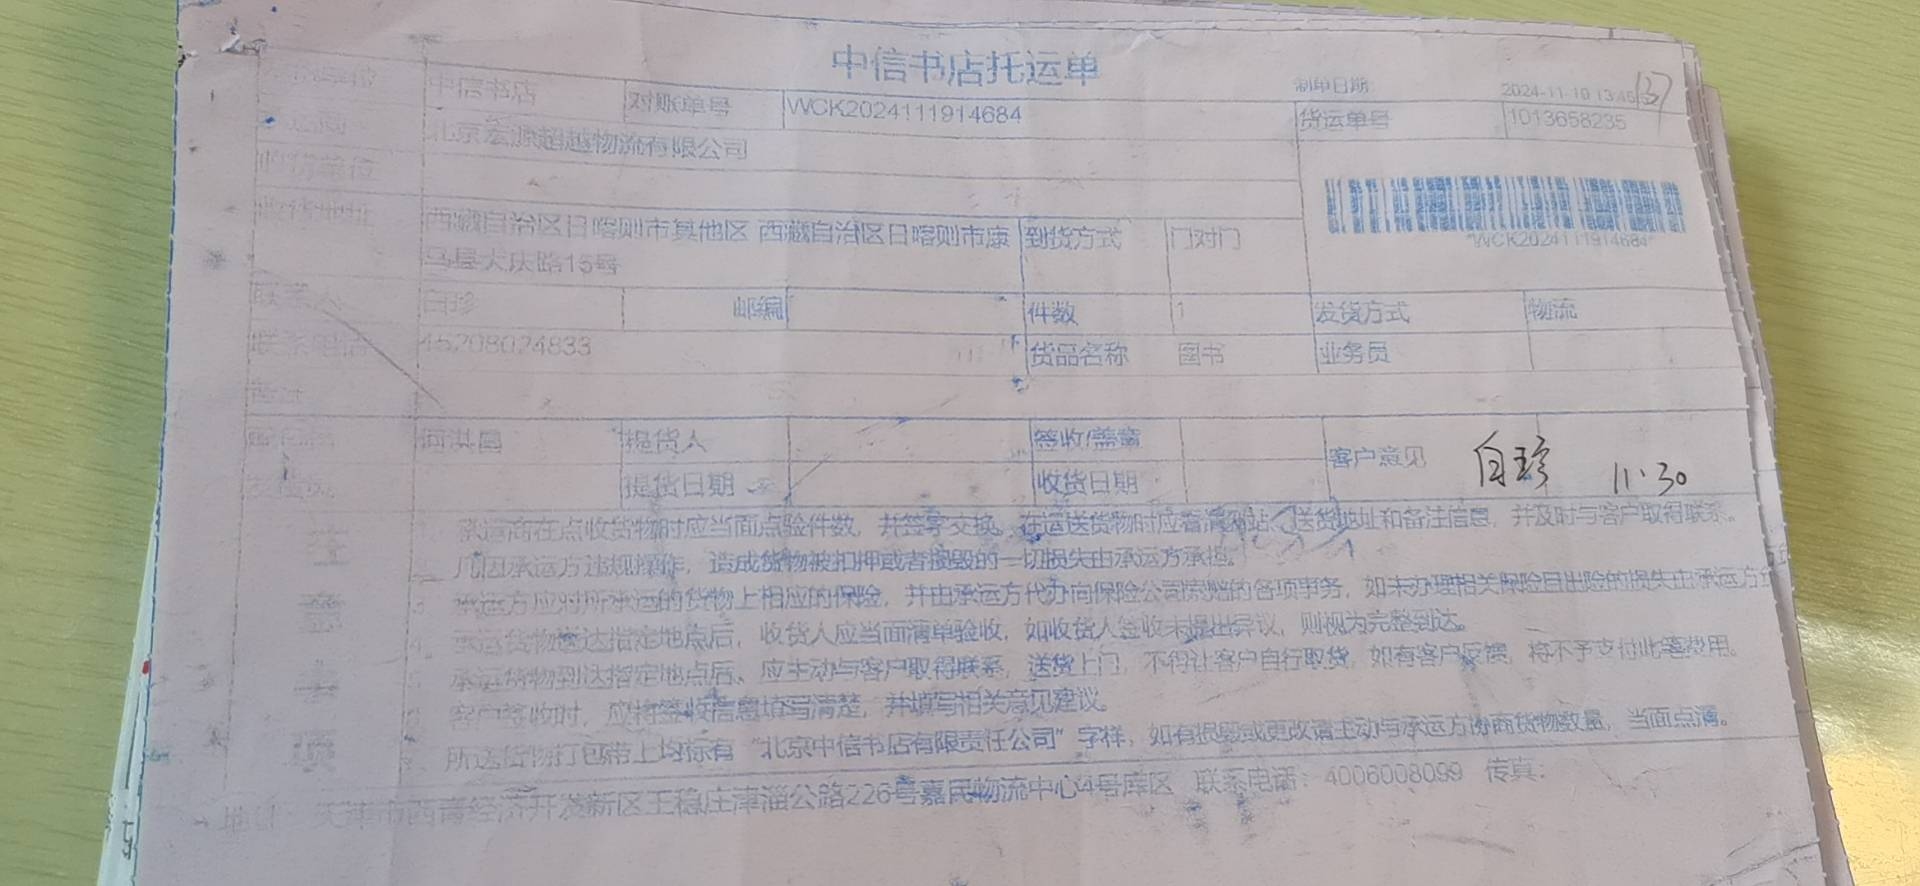 中信书店托运单
制单日期 2024-11-19 13:45
137
中信书店 对账单号 WCK2024111914684 货运单号 1013658235
北京宏源超越物流有限公司
收货单位
收货地址 西藏自治区日喀则市其他区 西藏自治区日喀则市康
马县大庆路15号
到货方式 门对门
*WCK2024111914684*
联系人 白珍 邮编 件数 1 发货方式 物流
联系电话 15208024833 货品名称 图书 业务员
备注
提货人 签收/盖章 客户意见 白珍 11.30
提货日期 收货日期
注意事项
承运商在点收货物时应当面点验件数，并签字交换。在运送货物时应看清到站、送货地址和备注信息，并及时与客户取得联系。
凡因承运方违规操作，造成货物被扣押或者损毁的一切损失由承运方承担。
3 承运方应对所承运的货物上相应的保险，并由承运方代办向保险公司索赔的各项事务，如未办理相关保险且出险的损失由承运方
4. 承运货物送达指定地点后，收货人应当面清单验收，如收货人签收未提出异议，则视为完整到达。
5. 承运货物到达指定地点后、应主动与客户取得联系，送货上门，不得让客户自行取货，如有客户反馈，将不予支付此笔费用。
客户签收时，应将签收信息填写清楚，并填写相关意见建议。
所送货物打包带上均标有“北京中信书店有限责任公司”字样，如有损毁或更改请主动与承运方协商货物数量，当面点清。
地址：天津市西青经济开发新区王稳庄津淄公路226号嘉民物流中心4号库区 联系电话：4006008099 传真：